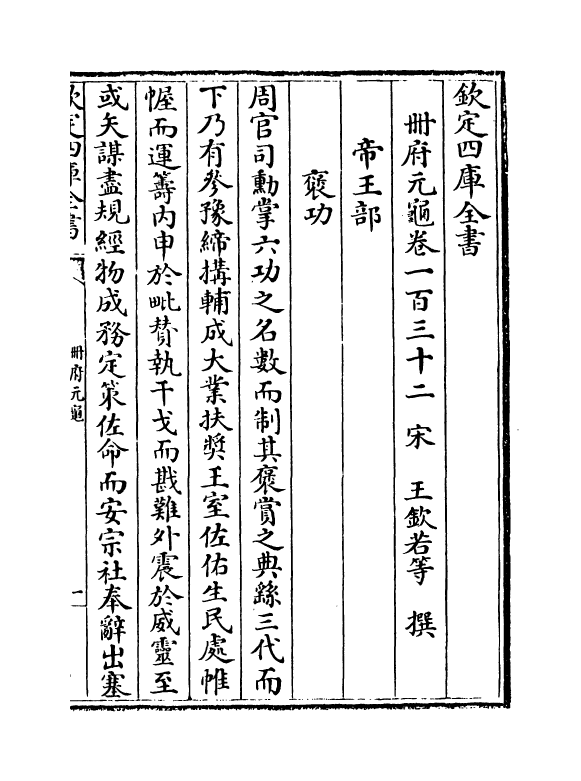 欽定四庫全書
冊府元龜卷一百三十二　宋　王欽若等　撰
帝王部
褒功
周官司勳掌六功之名數而制其褒賞之典繇三代而
下乃有參豫締搆輔成大業扶奬王室佐佑生民處帷
幄而運籌內申於毗賛執干戈而戡難外震於威靈至
或矢謀盡規經物成務定策佐命而安宗社奉辭出塞
欽定四庫全書
冊府元龜